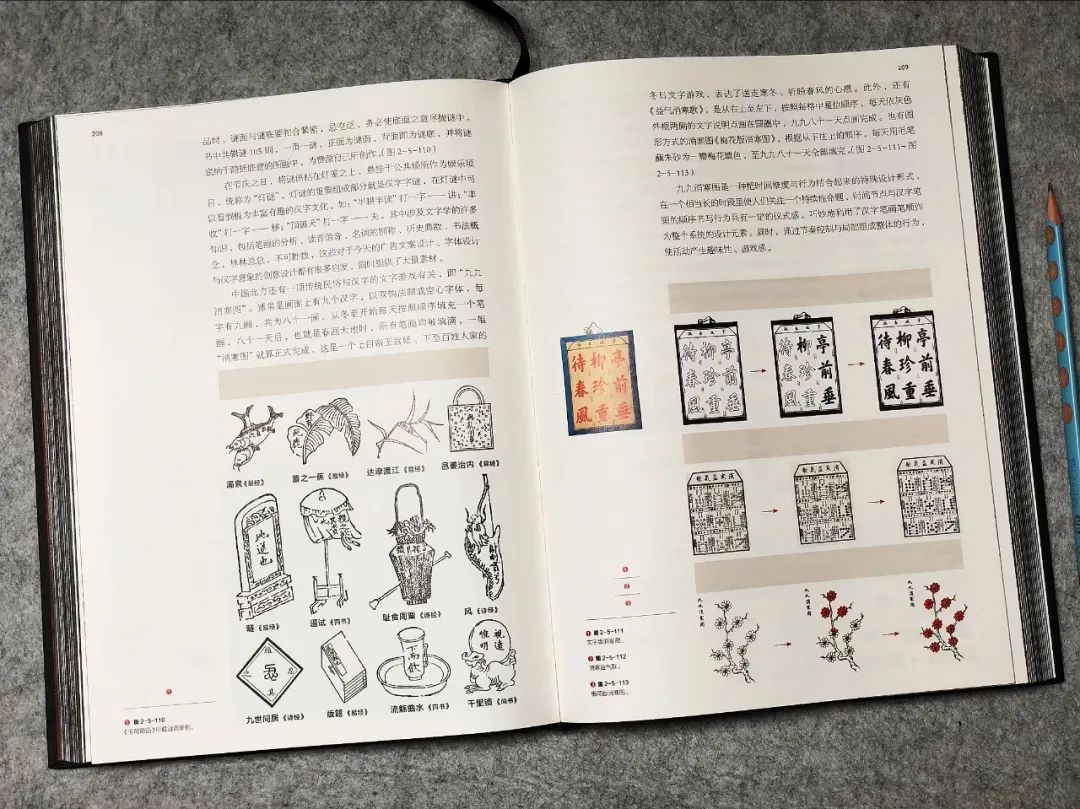 208
品时，谜面与谜底要扣合紧密，忌空泛，务必使底面之意尽拢谜中。
书中共辑谜105则，一页一谜，正面为谜面，背面即为谜底，并将谜
底纳于隐括底意的图画中，为费源自己所创作。（图2-5-110）
在节庆之日，将谜语粘在灯笼之上，悬挂于公共场所作为娱乐项
目，统称为“灯谜”。灯谜的重要组成部分就是汉字字谜，在灯谜中可
以看到极为丰富有趣的汉字文化，如：“半耕半读”打一字——讲；“丰
收”打一字——移；“顶破天”打一字——夫。其中涉及文字学的许多
知识，包括笔画的分析、读音谐音、名词的别称、历史典故、书法概
念，林林总总，不可胜数，这些对于今天的广告文案设计、字体设计
与汉字意象的创意设计都有很多启发，同时提供了大量素材。
中国北方还有一项传统民俗与汉字的文字游戏有关，即“九九
消寒图”。通常是画面上有九个汉字，以双钩法制成空心字体，每
字有九画，共为八十一画。从冬至开始每天按照顺序填充一个笔
画，八十一天后，也就是春回大地时，所有笔画均被填满，一幅
“消寒图”就算正式完成。这是一个上自帝王宫廷、下至百姓人家的
涌泉《易经》
覆之一蕉《易经》
达摩渡江《易经》
邑姜治内《易经》
此道也
《易经》
逼试《四书》
耻食周粟《诗经》
风《诗经》
九世同居《诗经》
版籍《易经》
下而饮
流觞曲水《四书》
视远
惟明
千里镜《尚书》
图2-5-110
209
冬日文字游戏，表达了送走寒冬、祈盼春风的心愿。此外，还有
《益气消寒歌》，是从右上至左下，按照每格中星位顺序，每天依灰色
外框两侧的文字说明点画在图中，九九八十一天点画完成。也有图
形方式的消寒图《梅花版消寒图》，根据从下往上的顺序，每天用毛笔
蘸朱砂为一瓣梅花填色，至九九八十一天全部填完。（图2-5-111~图
2-5-113）
九九消寒图是一种把时间维度与行为结合起来的特殊设计形式，
在一个相当长的时段里使人们关注一个持续性命题。时间节点与汉字笔
画的顺序书写行为具有一定的仪式感，巧妙地利用了汉字笔画笔顺作
为整个系统的设计元素。同时，通过节奏控制与局部组成整体的行为，
使活动产生趣味性、游戏感。
亭前垂
柳珍重
待春風
亭前垂
柳珍重
待春風
亭前垂
柳珍重
待春風
亭前垂
柳珍重
待春風
九九消寒圖
九九消寒圖
九九消寒圖
1
2
3
1 图2-5-111
文字版消寒图。
2 图2-5-112
消寒益气歌。
3 图2-5-113
梅花版消寒图。